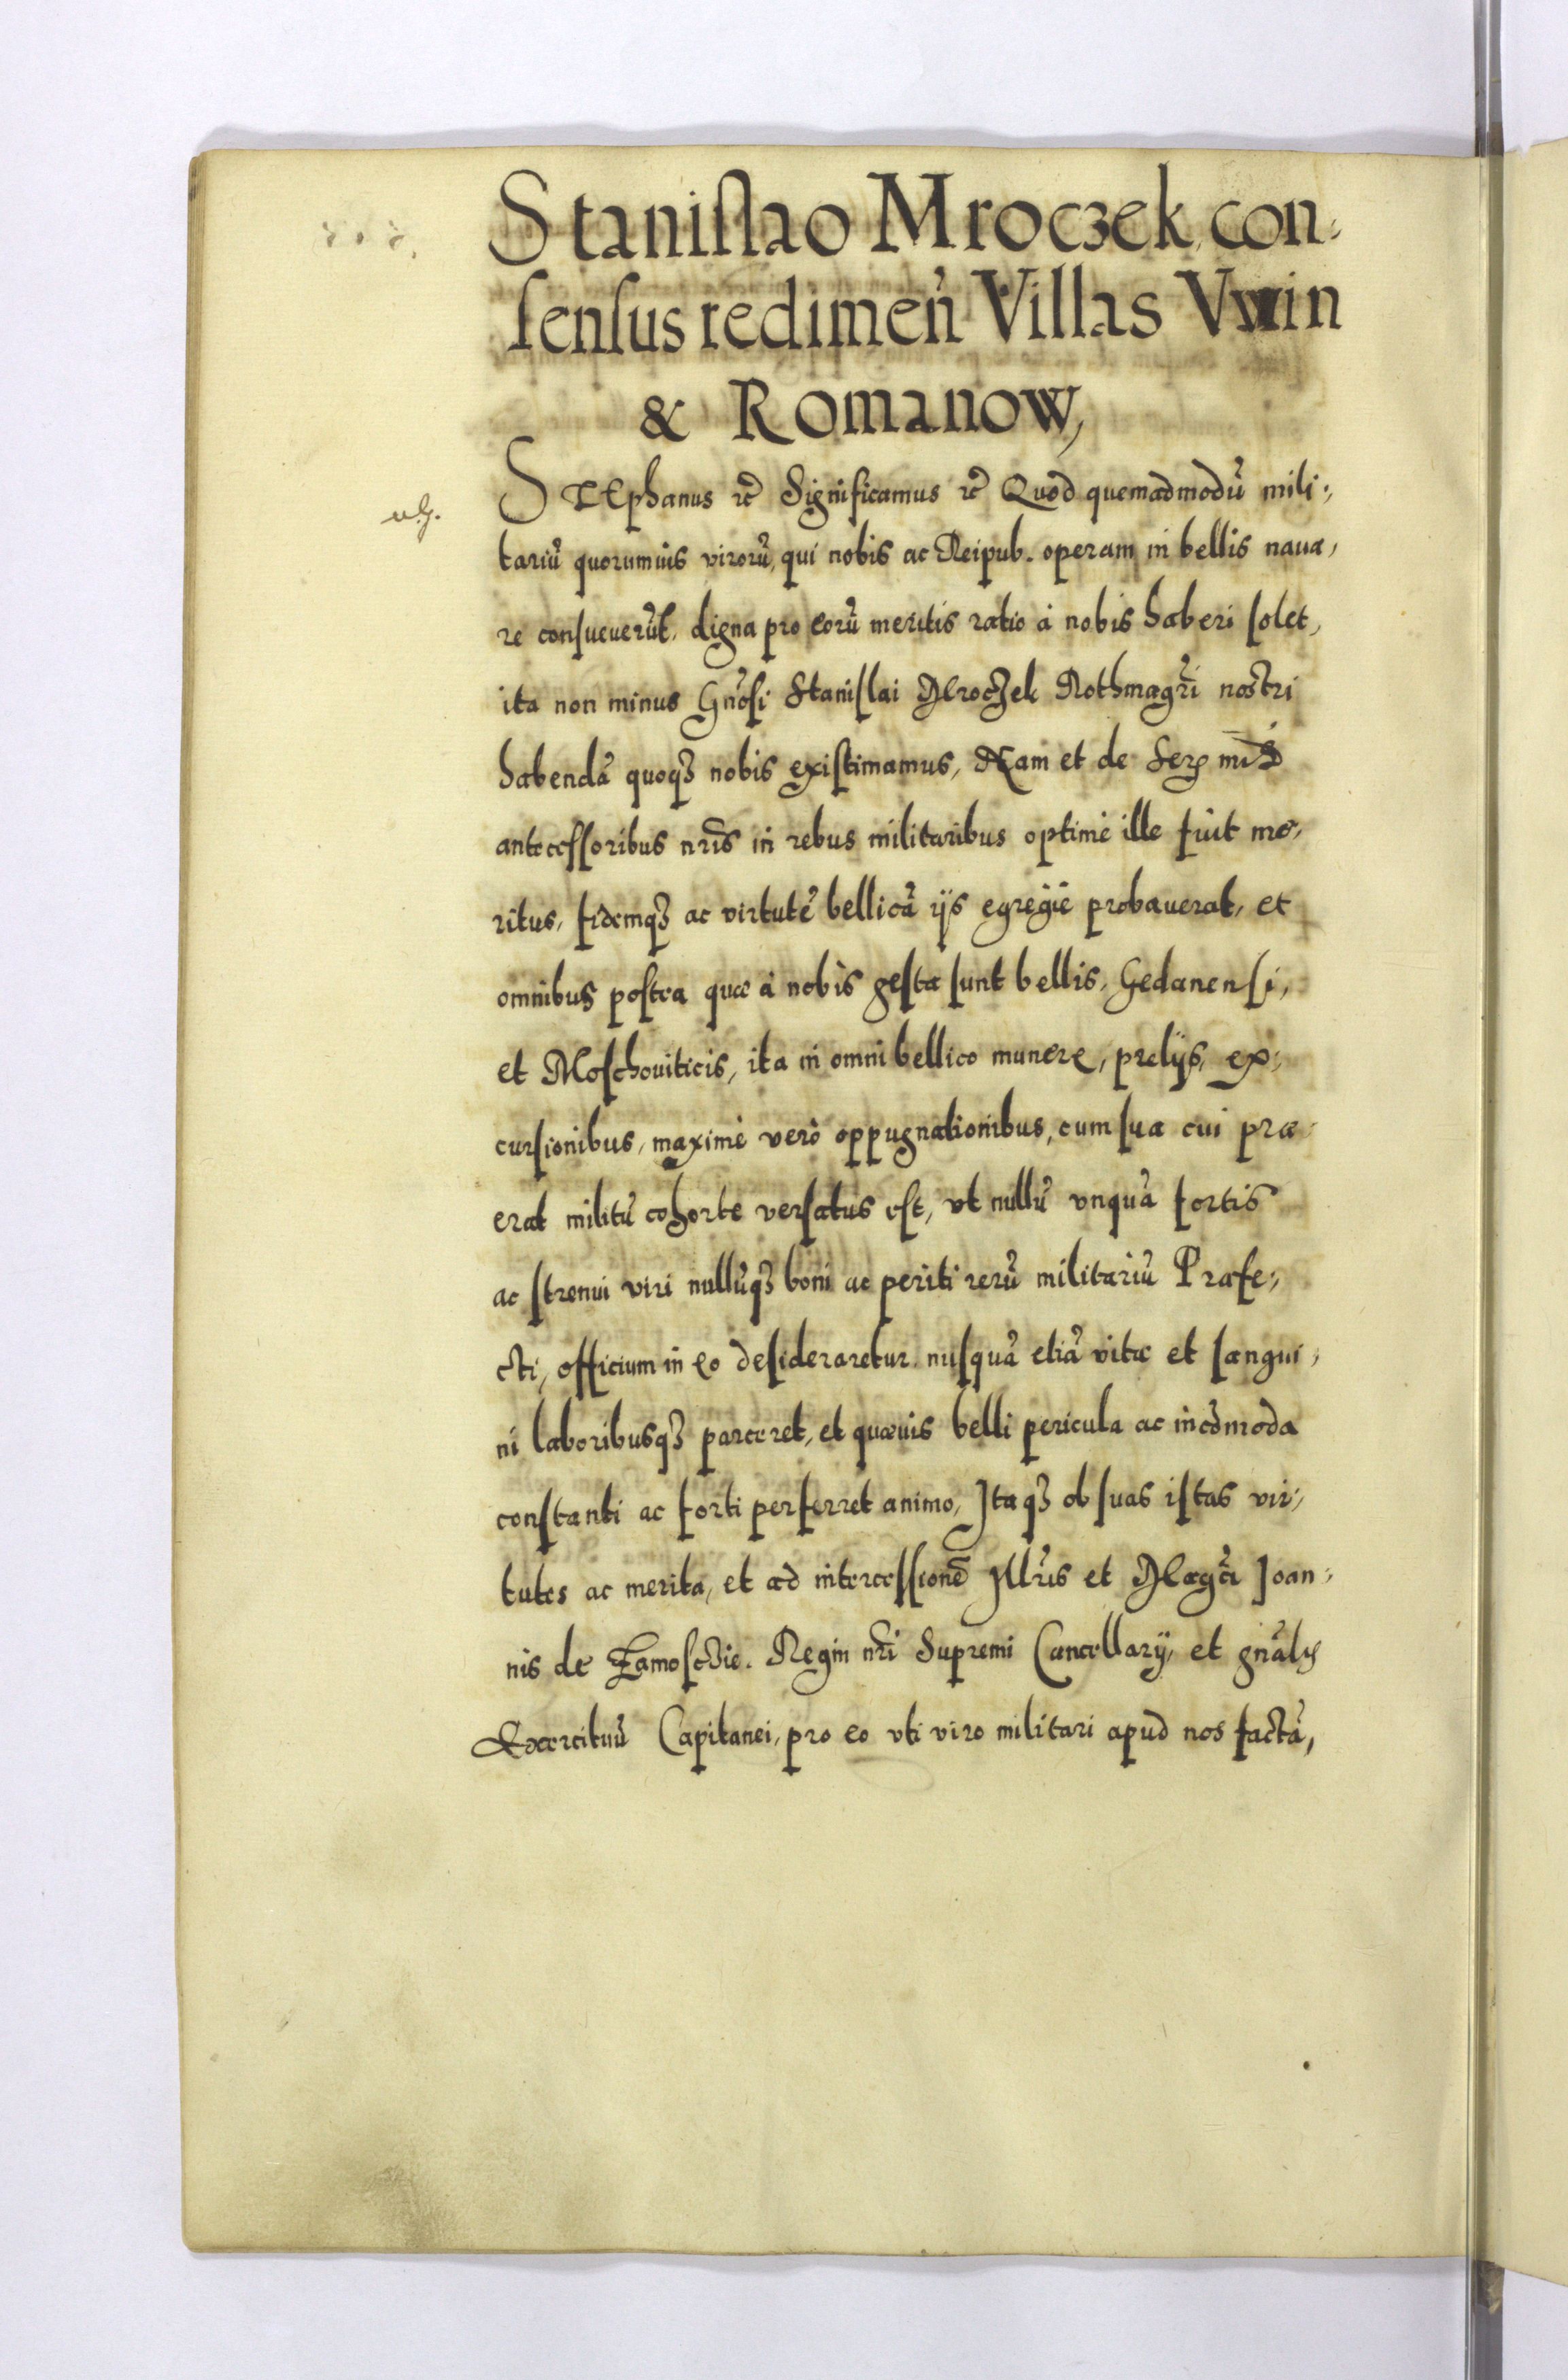 Stanislao Mroczek, con:
sensus redimen̄ Villas Vwin
& Romanow,
STEphanus rc̃ Significamus rc̃ Quod quemadmodũ mili:
tariũ quorumuis virorũ, qui nobis ac Reipub. operam in bellis naua,
re consueuerũt, digna pro eorũ meritis ratio à nobis haberi solet,
ita non minus Gnõsi Stanislai Mroczek Rothmagrĩ nostri
habendã quoq₃ nobis existimamus, Nam et de Ser
antecessoribus nrĩs in rebus militaribus optimè ille fuit me,
ritus, fidemq₃ ac virtutẽ bellicã ijs egregiè probauerat, et
omnibus postea quæ à nobis gesta sunt bellis, Gedanensi,
et Moschouiticis, ita in omni bellico munere, prelijs, ex:
cursionibus, maximè verò oppugnationibus, cum sua cui præ:
erat militũ cohorte versatus est, vt nullũ vnquã fortis
ac strenui viri nullũq₃ boni ac periti rerũ militariũ Præfe:
cti, officium in eo desideraretur. nusquã etiã vitæ et sangui:
ni laboribusq₃ parceret, et quæuis belli pericula ac incõmoda
constanti ac forti perferret animo, Itaq₃ ob suas istas vir:
tutes ac merita, et ad intercessionẽ Illrĩs et Magcĩ Joan:
nis de Zamoscie. Regni nrĩ Supremi Cancellarij, et gnãlis
Exercituũ Capitanei, pro eo vti viro militari apud nos factã,